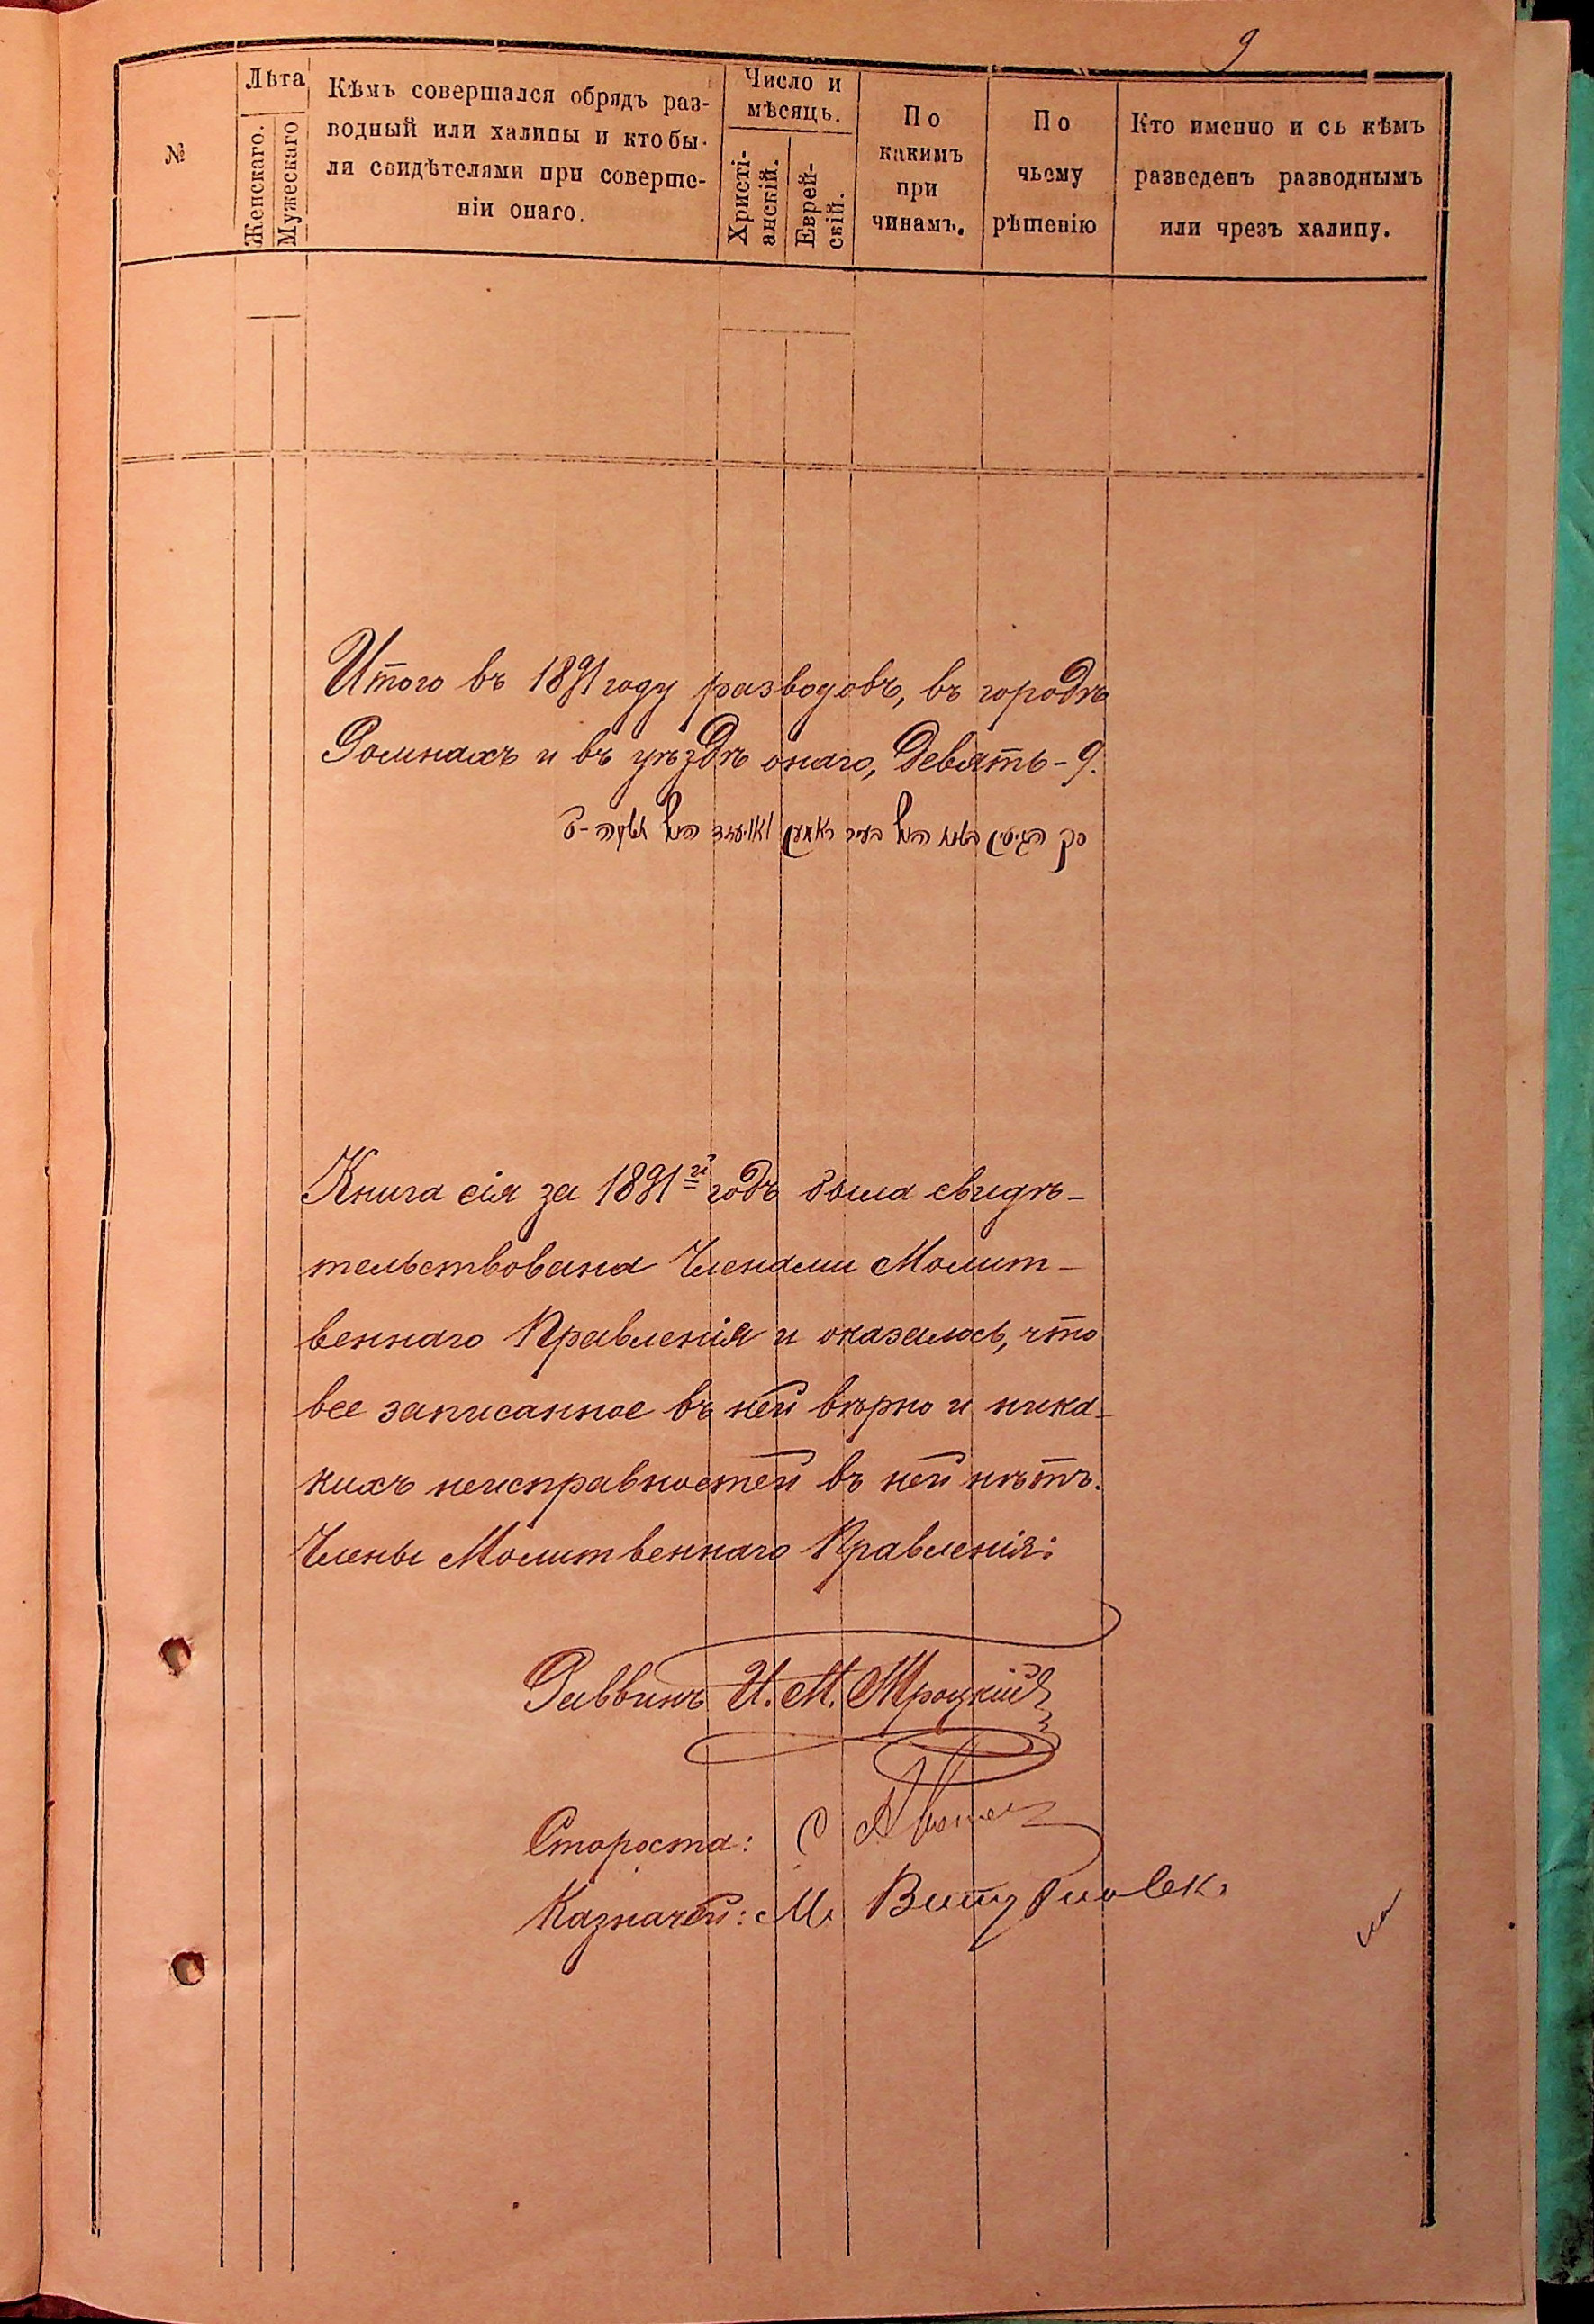 9
№
Лѣта
Женскаго.
Мужескаго
Кѣмъ совершался обрядъ раз-
водный или халицы и кто бы-
ли свидѣтелями при соверше-
ніи онаго.
Число и
мѣсяцъ.
Христі-
анскій.
Еврей-
скій.
По
какимъ
при
чинамъ.
По
чьему
рѣшенію
Кто именно и съ кѣмъ
разведенъ разводнымъ
или чрезъ халицу.
Итого въ 1891 году разводовъ, въ городѣ
Ромнахъ и въ уѣздѣ онаго, девять - 9.
Книга сія за 1891й годъ была свидѣ-
тельствована Членами Молит-
веннаго Правленія и оказалось, что
все записанное въ ней вѣрно и ника-
кихъ неисправностей въ ней нѣтъ.
Члены Молитвеннаго Правленія:
Раввинъ И. М. Троцкій
Староста: С
Казначей: М.